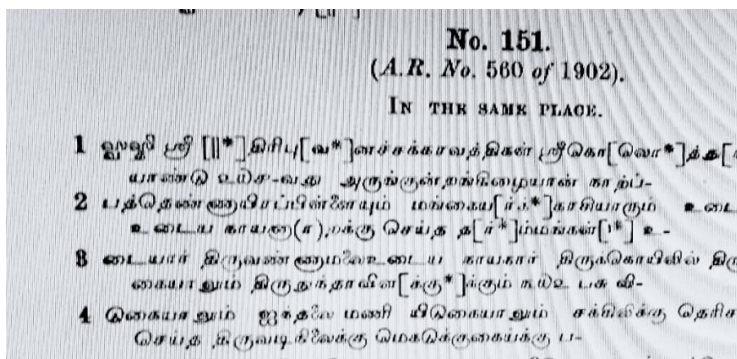 No. 151.
(A.R. No. 560 of 1902).
IN THE SAME PLACE.
1 ஸ்வஸ்தி ஸ்ரீ [||*] திரிபு[வ*]னச்சக்கரவத்திகள் ஸ்ரீகொ[லொ*]த்த
யாண்டு வது அருங்குன்றங்கிழையான் நாற்ப-
2 பத்தெண்ணாயிரப்பிள்ளையும் மங்கைய[ர்க்*]காசியாரும் உடை
உடைய நாயனா(ர),ற்க்கு செய்த த[ர்*]ம்மங்கள்[|*] உ-
3 டையார் திருவண்ணாமலைஉடைய நாயனார் திருக்கொயிலில் திரு
கையாலும் திருநுந்தாவிள[க்கு*]க்கும் பசு வி-
4 டுகையாலும் ஐந்தலை மணி யிடுகையாலும் சக்கிலிக்கு தெரிச
செய்த திருவடிநிலைக்கு மெகடுக்குகையக்கு ப-